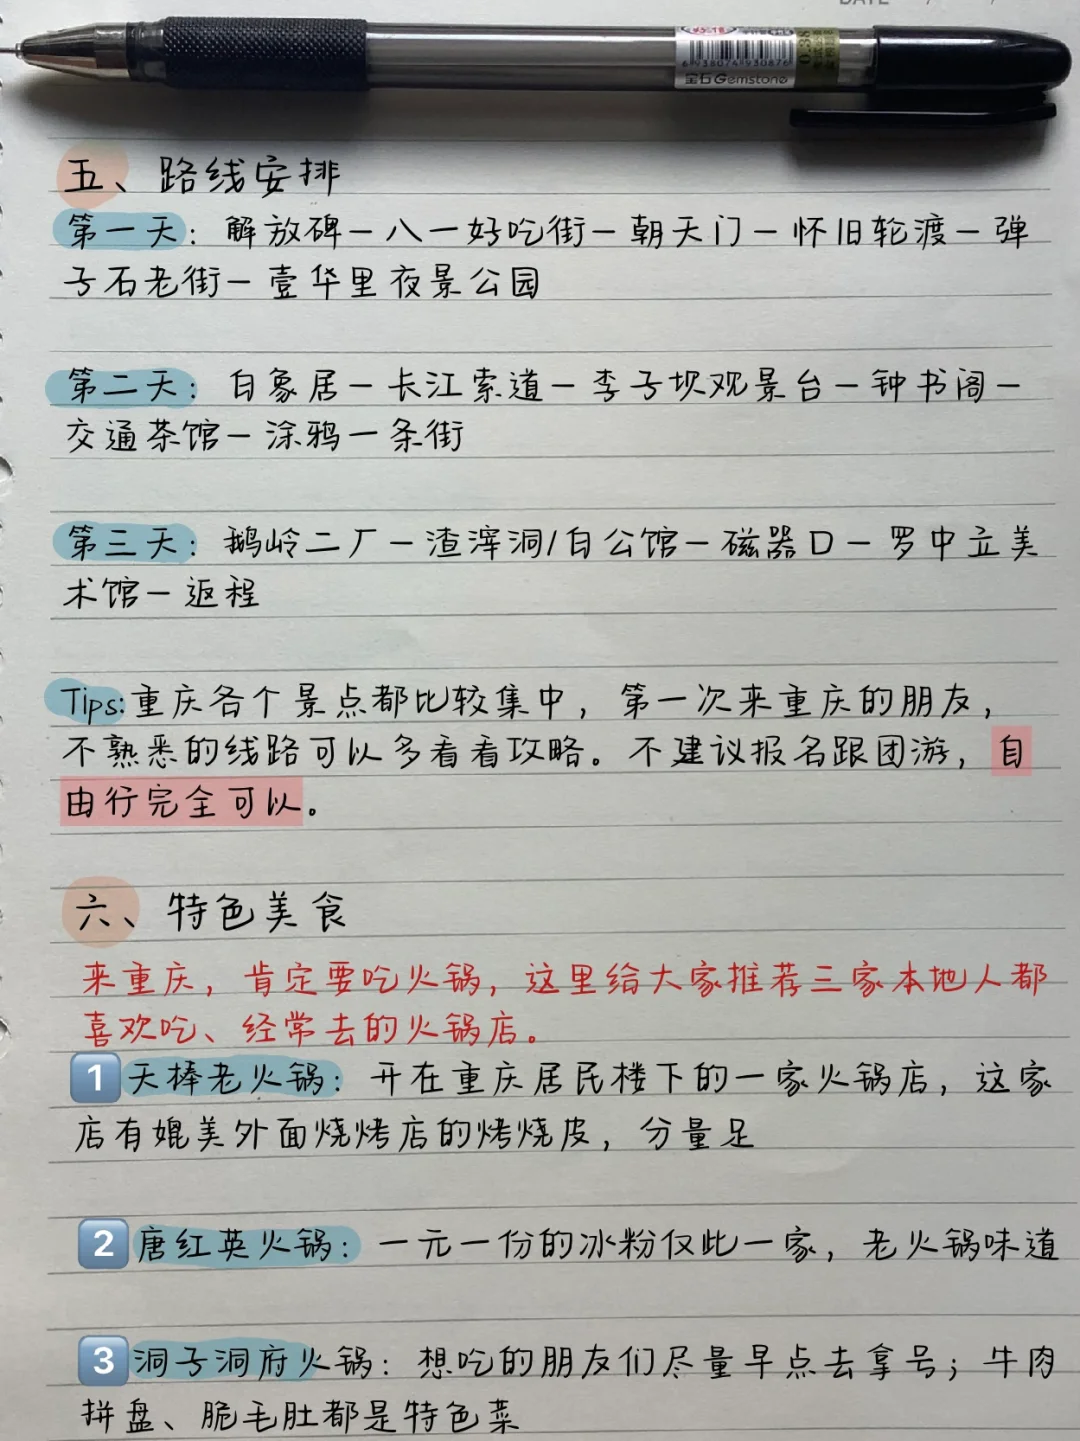 DATE / /
6 938074 930876
0.38
宝石Gemstone
五、路线安排
第一天：解放碑－八一好吃街－朝天门－怀旧轮渡－弹
子石老街－壹华里夜景公园
第二天：白象居－长江索道－李子坝观景台－钟书阁－
交通茶馆－涂鸦一条街
第三天：鹅岭二厂－渣滓洞/白公馆－磁器口－罗中立美
术馆－返程
Tips:重庆各个景点都比较集中，第一次来重庆的朋友，
不熟悉的线路可以多看看攻略。不建议报名跟团游，自
由行完全可以。
六、特色美食
来重庆，肯定要吃火锅，这里给大家推荐三家本地人都
喜欢吃、经常去的火锅店。
1天棒老火锅：开在重庆居民楼下的一家火锅店，这家
店有媲美外面烧烤店的烤烧皮，分量足
2唐红英火锅：一元一份的冰粉仅此一家，老火锅味道
3洞子洞府火锅：想吃的朋友们尽量早点去拿号；牛肉
拼盘、脆毛肚都是特色菜